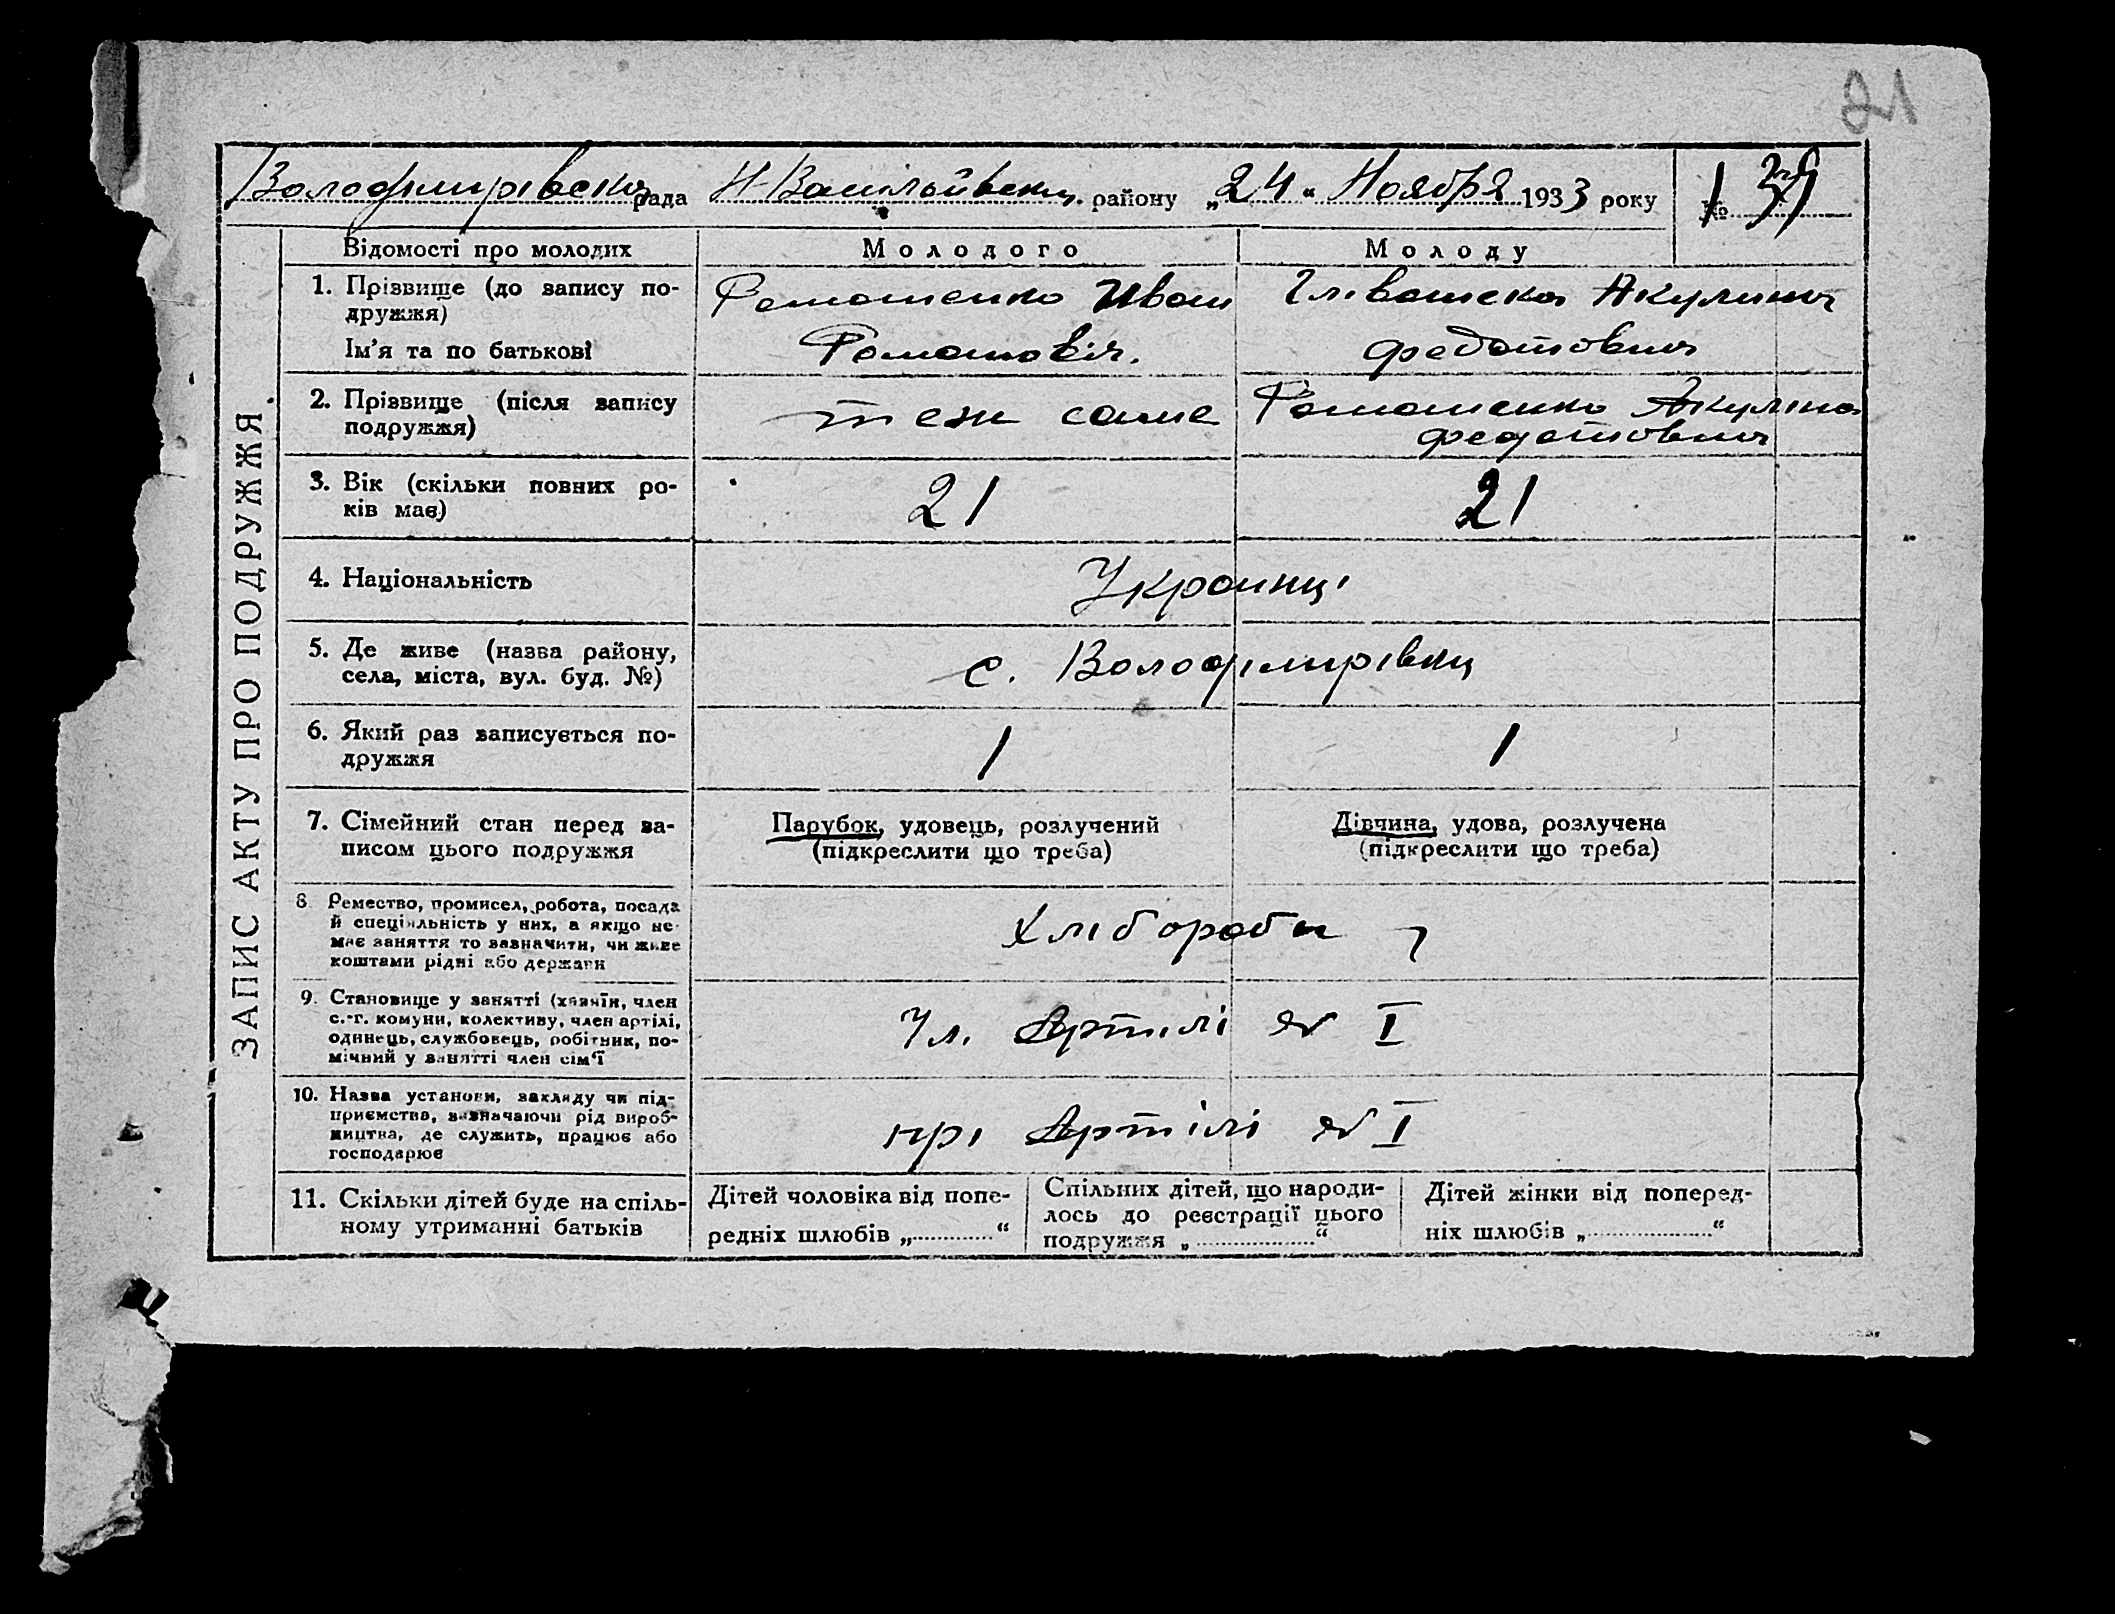 21
Володимирівська рада Н-Васильівськ. району „24“ Ноября 1933 року №
Відомості про молодих Молодого Молоду
1. Прізвище (до запису по-
дружжя)
Ім'я та по батькові
Романенко Иван
Романовіч.
Акулина
Федотовна
2. Прізвище (після запису
подружжя)
теж саме
Романенко Акуліна
Федотовна
3. Вік (скільки повних ро-
ків має)
21 21
4. Національність
Украинці
5. Де живе (назва району,
села, міста, вул. буд. №)
с. Володимирівки
6. Який раз записується по-
дружжя
1 1
7. Сімейний стан перед за-
писом цього подружжя
Парубок, удовець, розлучений
(підкреслити що треба)
Дівчина, удова, розлучена
(підкреслити що треба)
8. Ремество, промисел, робота, посада
й спеціяльність у них, а якщо не
має заняття то зазначити, чи живе
коштами рідні або держави
Хлібороби
9. Становище у занятті (хазяїн, член
с.-г. комуни, колективу, член артілі,
одинець, службовець, робітник, по-
мічний у занятті член сім'ї
Чл. Артилі № I
10. Назва установи, закладу чи під-
приємства, зазначаючи рід вироб-
ництва, де служить, працює або
господарює
прі Артілі № I
11. Скільки дітей буде на спіль-
ному утриманні батьків
Дітей чоловіка від попе-
редніх шлюбів „ “
Спільних дітей, що народи-
лось до реєстрації цього
подружжя „ “
Дітей жінки від поперед-
ніх шлюбів „ “
ЗАПИС АКТУ ПРО ПОДРУЖЖЯ.